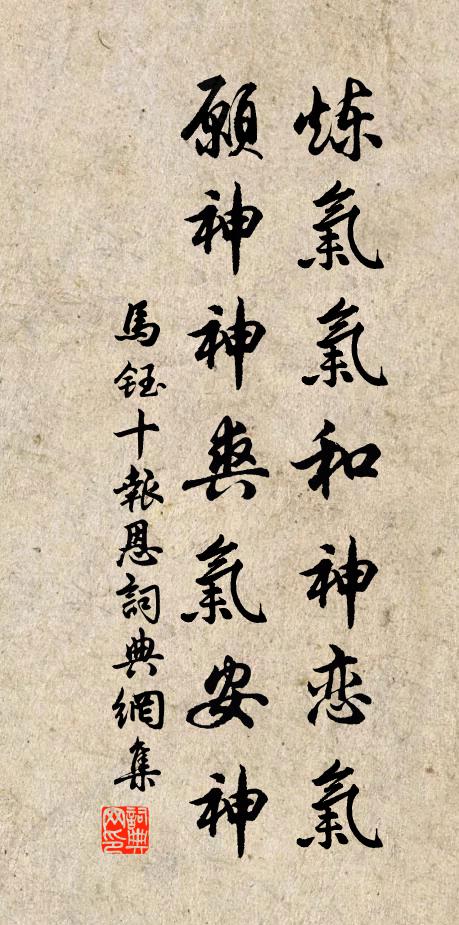 炼氣氣和神恋氣
願神神爽氣安神
馬鈺十報恩詞典網集
詞典
网印